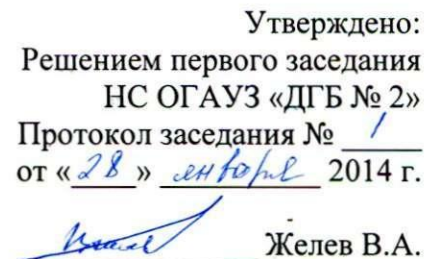 Утверждено:
Решением первого заседания
НС ОГАУЗ «ДГБ № 2»
Протокол заседания № 1
от «28» января 2014 г.
Желев В.А.